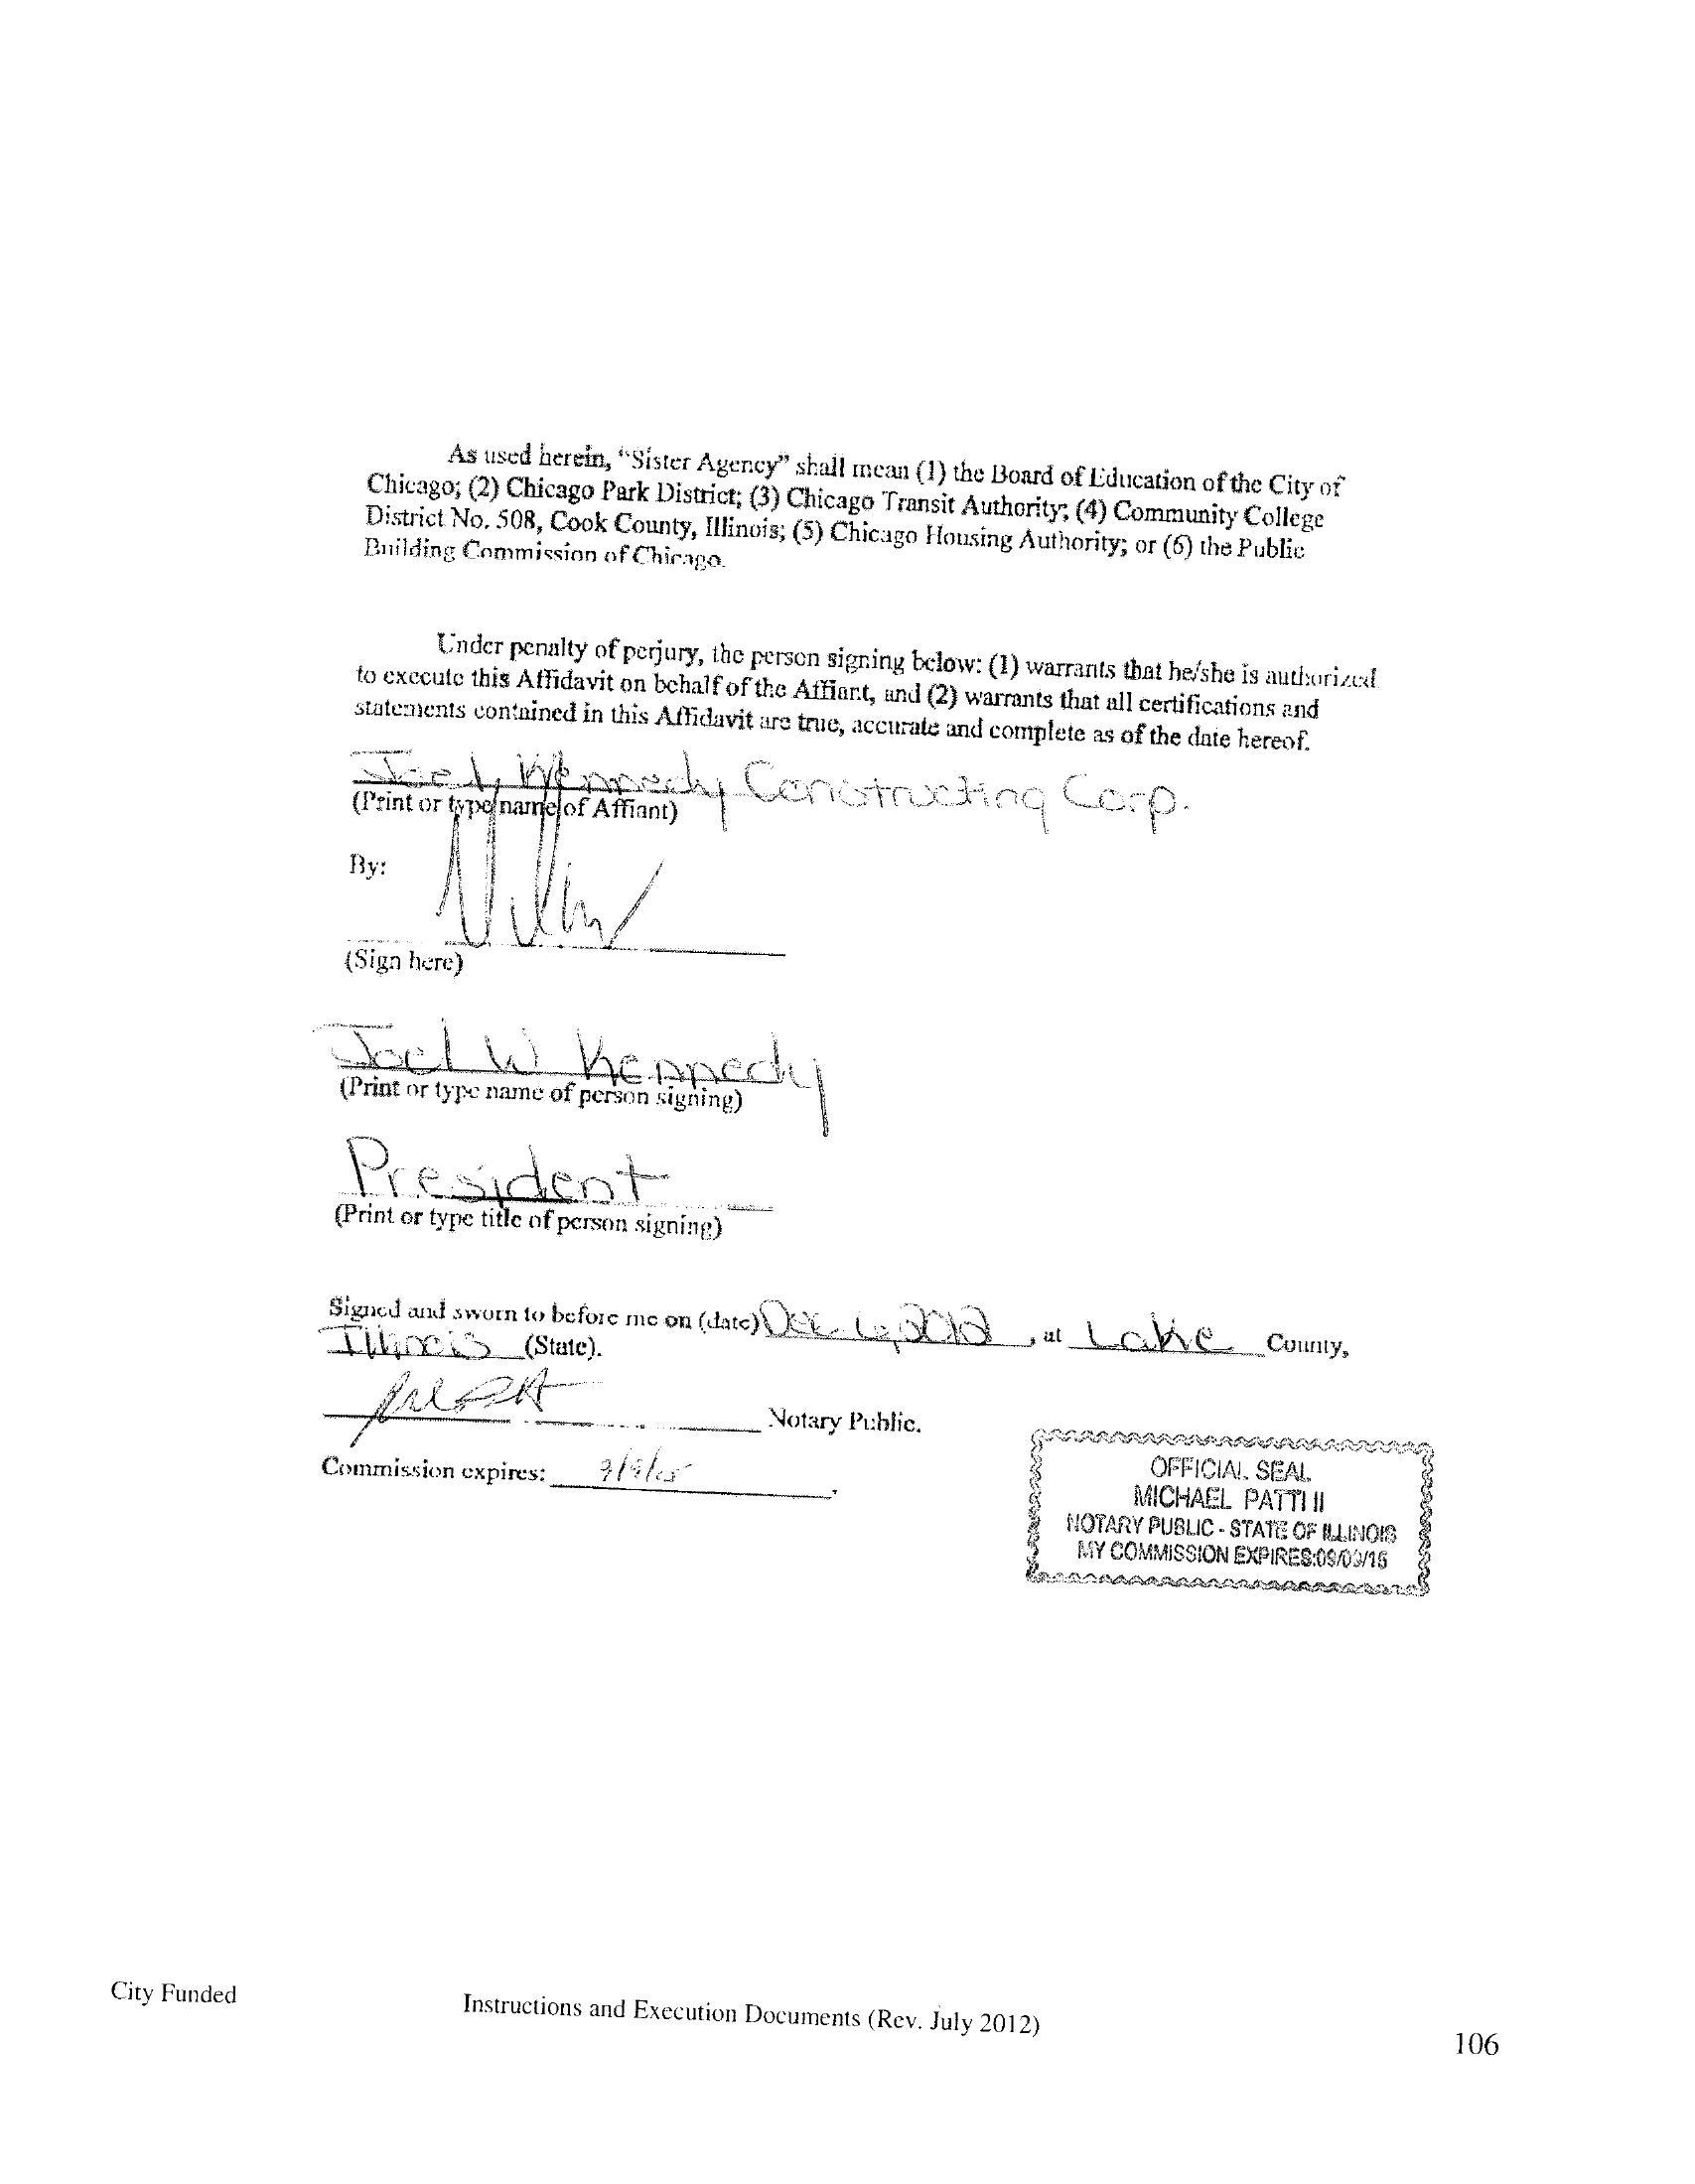 As used herein, “Sister Agency” shall mean (1) the Board of Education of the City of
Chicago; (2) Chicago Park District; (3) Chicago Transit Authority; (4) Community College
District No. 508, Cook County, Illinois; (5) Chicago Housing Authority; or (6) the Public
Building Commission of Chicago.
Under penalty of perjury, the person signing below: (1) warrants that he/she is authorized
to execute this Affidavit on behalf of the Affiant, and (2) warrants that all certifications and
statements contained in this Affidavit are true, accurate and complete as of the date hereof.
Joel Kennedy Constructing Corp.
(Print or type name of Affiant)
By:
(Sign here)
Joel W Kennedy
(Print or type name of person signing)
President
(Print or type title of person signing)
Signed and sworn to before me on (date) Dec 6, 2012, at Lake County,
Illinois (State).
Notary Public.
Commission expires:
OFFICIAL SEAL
MICHAEL PATTI II
NOTARY PUBLIC - STATE OF ILLINOIS
MY COMMISSION EXPIRES:
City Funded
Instructions and Execution Documents (Rev. July 2012)
106